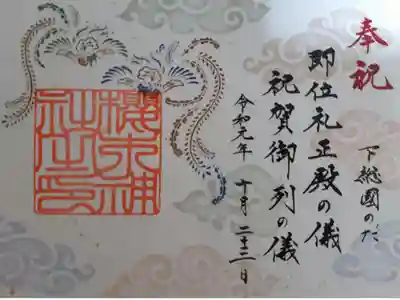 奉祝
下総國のだ
即位礼正殿の儀
祝賀御列の儀
令和元年 十月 二十二日
櫻木神
社之印